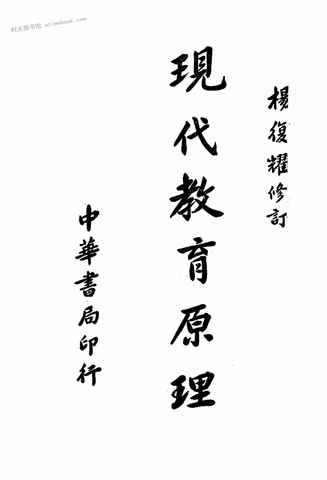 楊復耀修訂
現代教育原理
中華書局印行